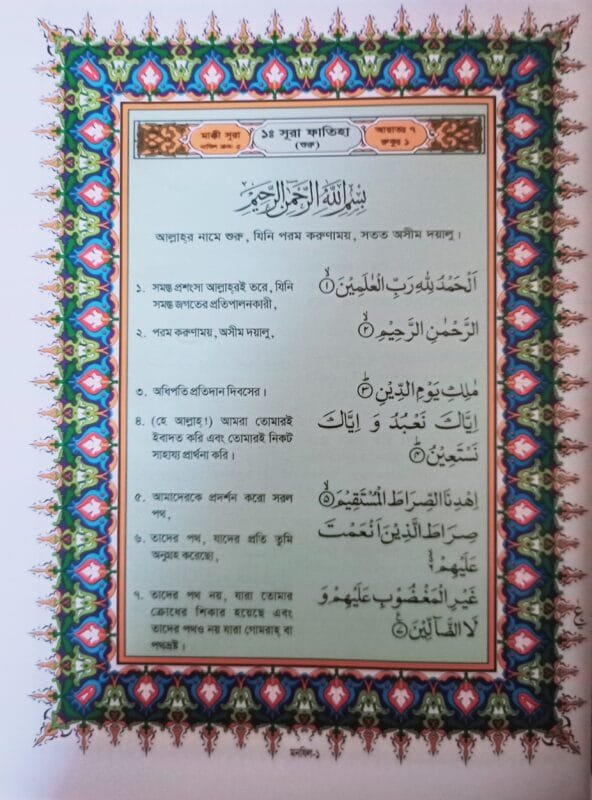 মাক্কী সূরা
নাযিল ক্রম: ৫
১ঃ সূরা ফাতিহা
(শুরু)
আয়াতঃ ৭
রুকুঃ ১
بِسْمِ اللّٰهِ الرَّحْمٰنِ الرَّحِيْمِ
আল্লাহ্‌র নামে শুরু, যিনি পরম করুণাময়, সতত অসীম দয়ালু।
১. সমস্ত প্রশংসা আল্লাহ্‌রই তরে, যিনি
সমস্ত জগতের প্রতিপালনকারী,
اَلْحَمْدُ لِلّٰهِ رَبِّ الْعٰلَمِيْنَ ۙ﴿۱﴾
২. পরম করুণাময়, অসীম দয়ালু,
الرَّحْمٰنِ الرَّحِيْمِ ۙ﴿۲﴾
৩. অধিপতি প্রতিদান দিবসের।
مٰلِكِ يَوْمِ الدِّيْنِ ؕ﴿۳﴾
৪. (হে আল্লাহ্!) আমরা তোমারই
ইবাদত করি এবং তোমারই নিকট
সাহায্য প্রার্থনা করি।
اِيَّاكَ نَعْبُدُ وَ اِيَّاكَ
نَسْتَعِيْنُ ؕ﴿۴﴾
৫. আমাদেরকে প্রদর্শন করো সরল
পথ,
اِهْدِنَا الصِّرَاطَ الْمُسْتَقِيْمَ ۙ﴿۵﴾
৬. তাদের পথ, যাদের প্রতি তুমি
অনুগ্রহ করেছো,
صِرَاطَ الَّذِيْنَ اَنْعَمْتَ
عَلَيْهِمْ ۙ۬
৭. তাদের পথ নয়, যারা তোমার
ক্রোধের শিকার হয়েছে এবং
তাদের পথও নয় যারা গোমরাহ্ বা
পথভ্রষ্ট।
غَيْرِ الْمَغْضُوْبِ عَلَيْهِمْ وَ
لَا الضَّآلِّيْنَ ﴿۷﴾
ع
মনযিল-১